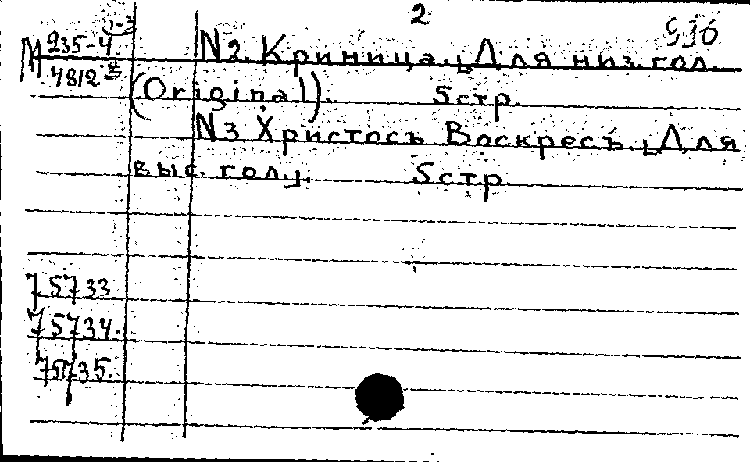 2
936
1-3
М 235-4
7812
N2. Криница. [Для низ. гол.
(Original). 5 стр.
N3 Христосъ Воскресъ. [Для
выс. гол.]. 5 стр.
75733
75734.
75735.